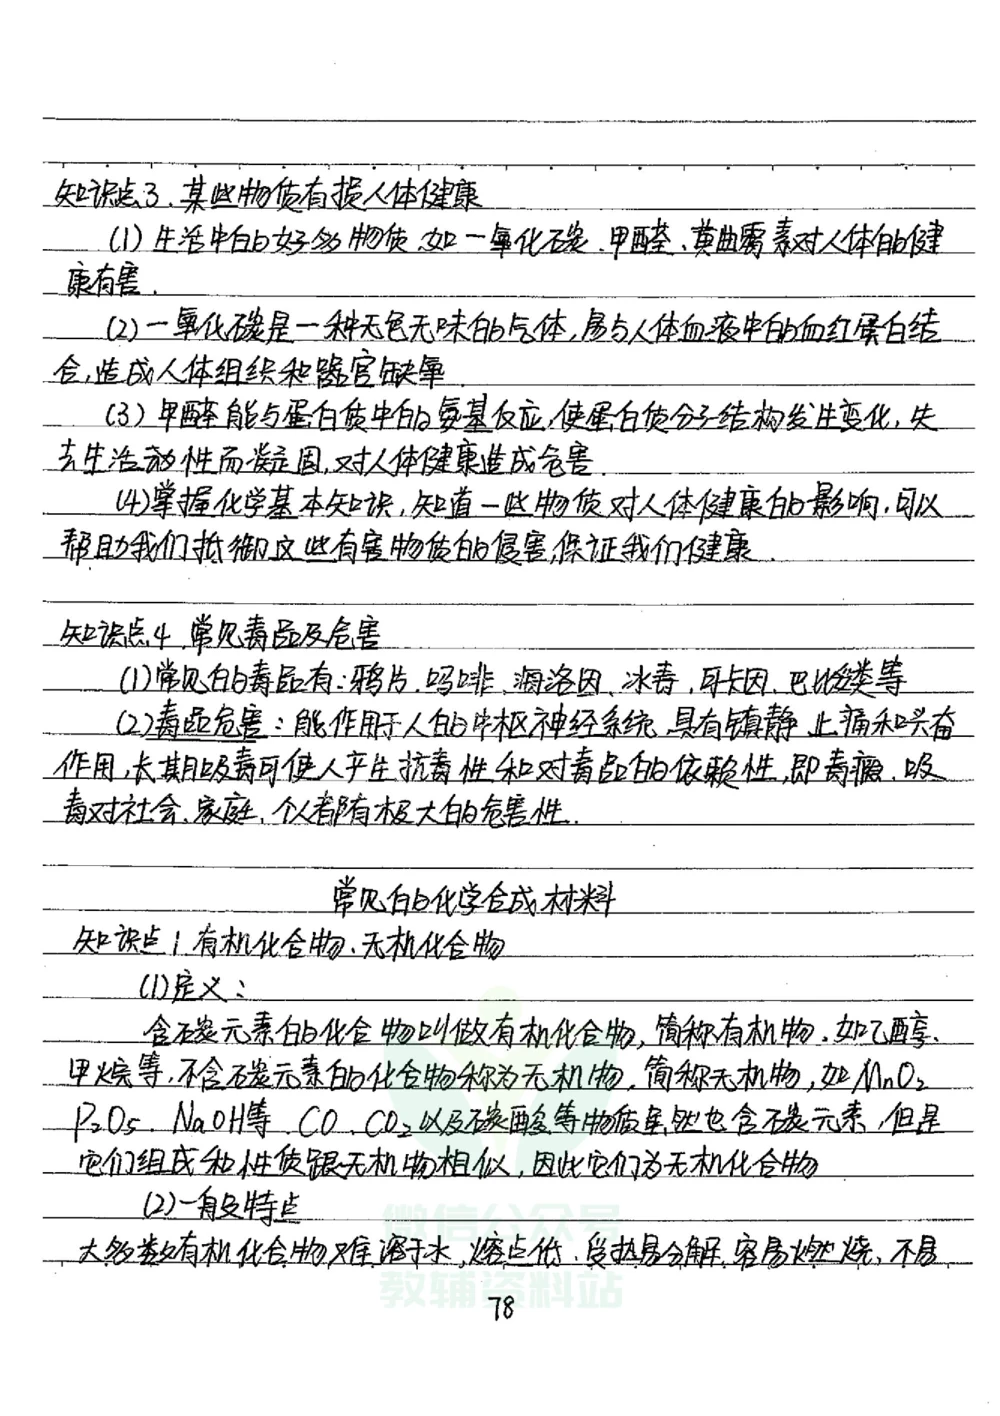 知识点3.某些物质有损人体健康
(1)生活中的好多物质如一氧化碳、甲醛、黄曲霉素对人体的健
康有害.
(2)一氧化碳是一种无色无味的气体,易与人体血液中的血红蛋白结
合,造成人体组织和器官缺氧
(3)甲醛能与蛋白质中的氨基反应,使蛋白质分子结构发生变化,失
去生活动性而凝固,对人体健康造成危害.
(4)掌握化学基本知识,知道一些物质对人体健康的影响,可以
帮助我们抵御这些有害物质的侵害,保证我们健康.
知识点4.常见毒品及危害
(1)常见的毒品有:鸦片、吗啡、海洛因、冰毒、可卡因、巴比妥类等
(2)毒品危害:能作用于人的中枢神经系统,具有镇静止痛和兴奋
作用,长期吸毒可使人产生抗毒性和对毒品的依赖性,即毒瘾.吸
毒对社会、家庭、个人都有极大的危害性.
常见的化学合成材料
知识点1.有机化合物、无机化合物
(1)定义:
含碳元素的化合物叫做有机化合物,简称有机物.如乙醇、
甲烷等,不含碳元素的化合物称为无机物,简称无机物,如MnO₂
P₂O₅、NaOH等、CO、CO₂以及碳酸等物质虽然也含碳元素,但是
它们组成和性质跟无机物相似,因此它们为无机化合物
(2)一般特点
大多数有机化合物难溶于水,熔点低.受热易分解.容易燃烧,不易
78
微信公众号
教辅资料站